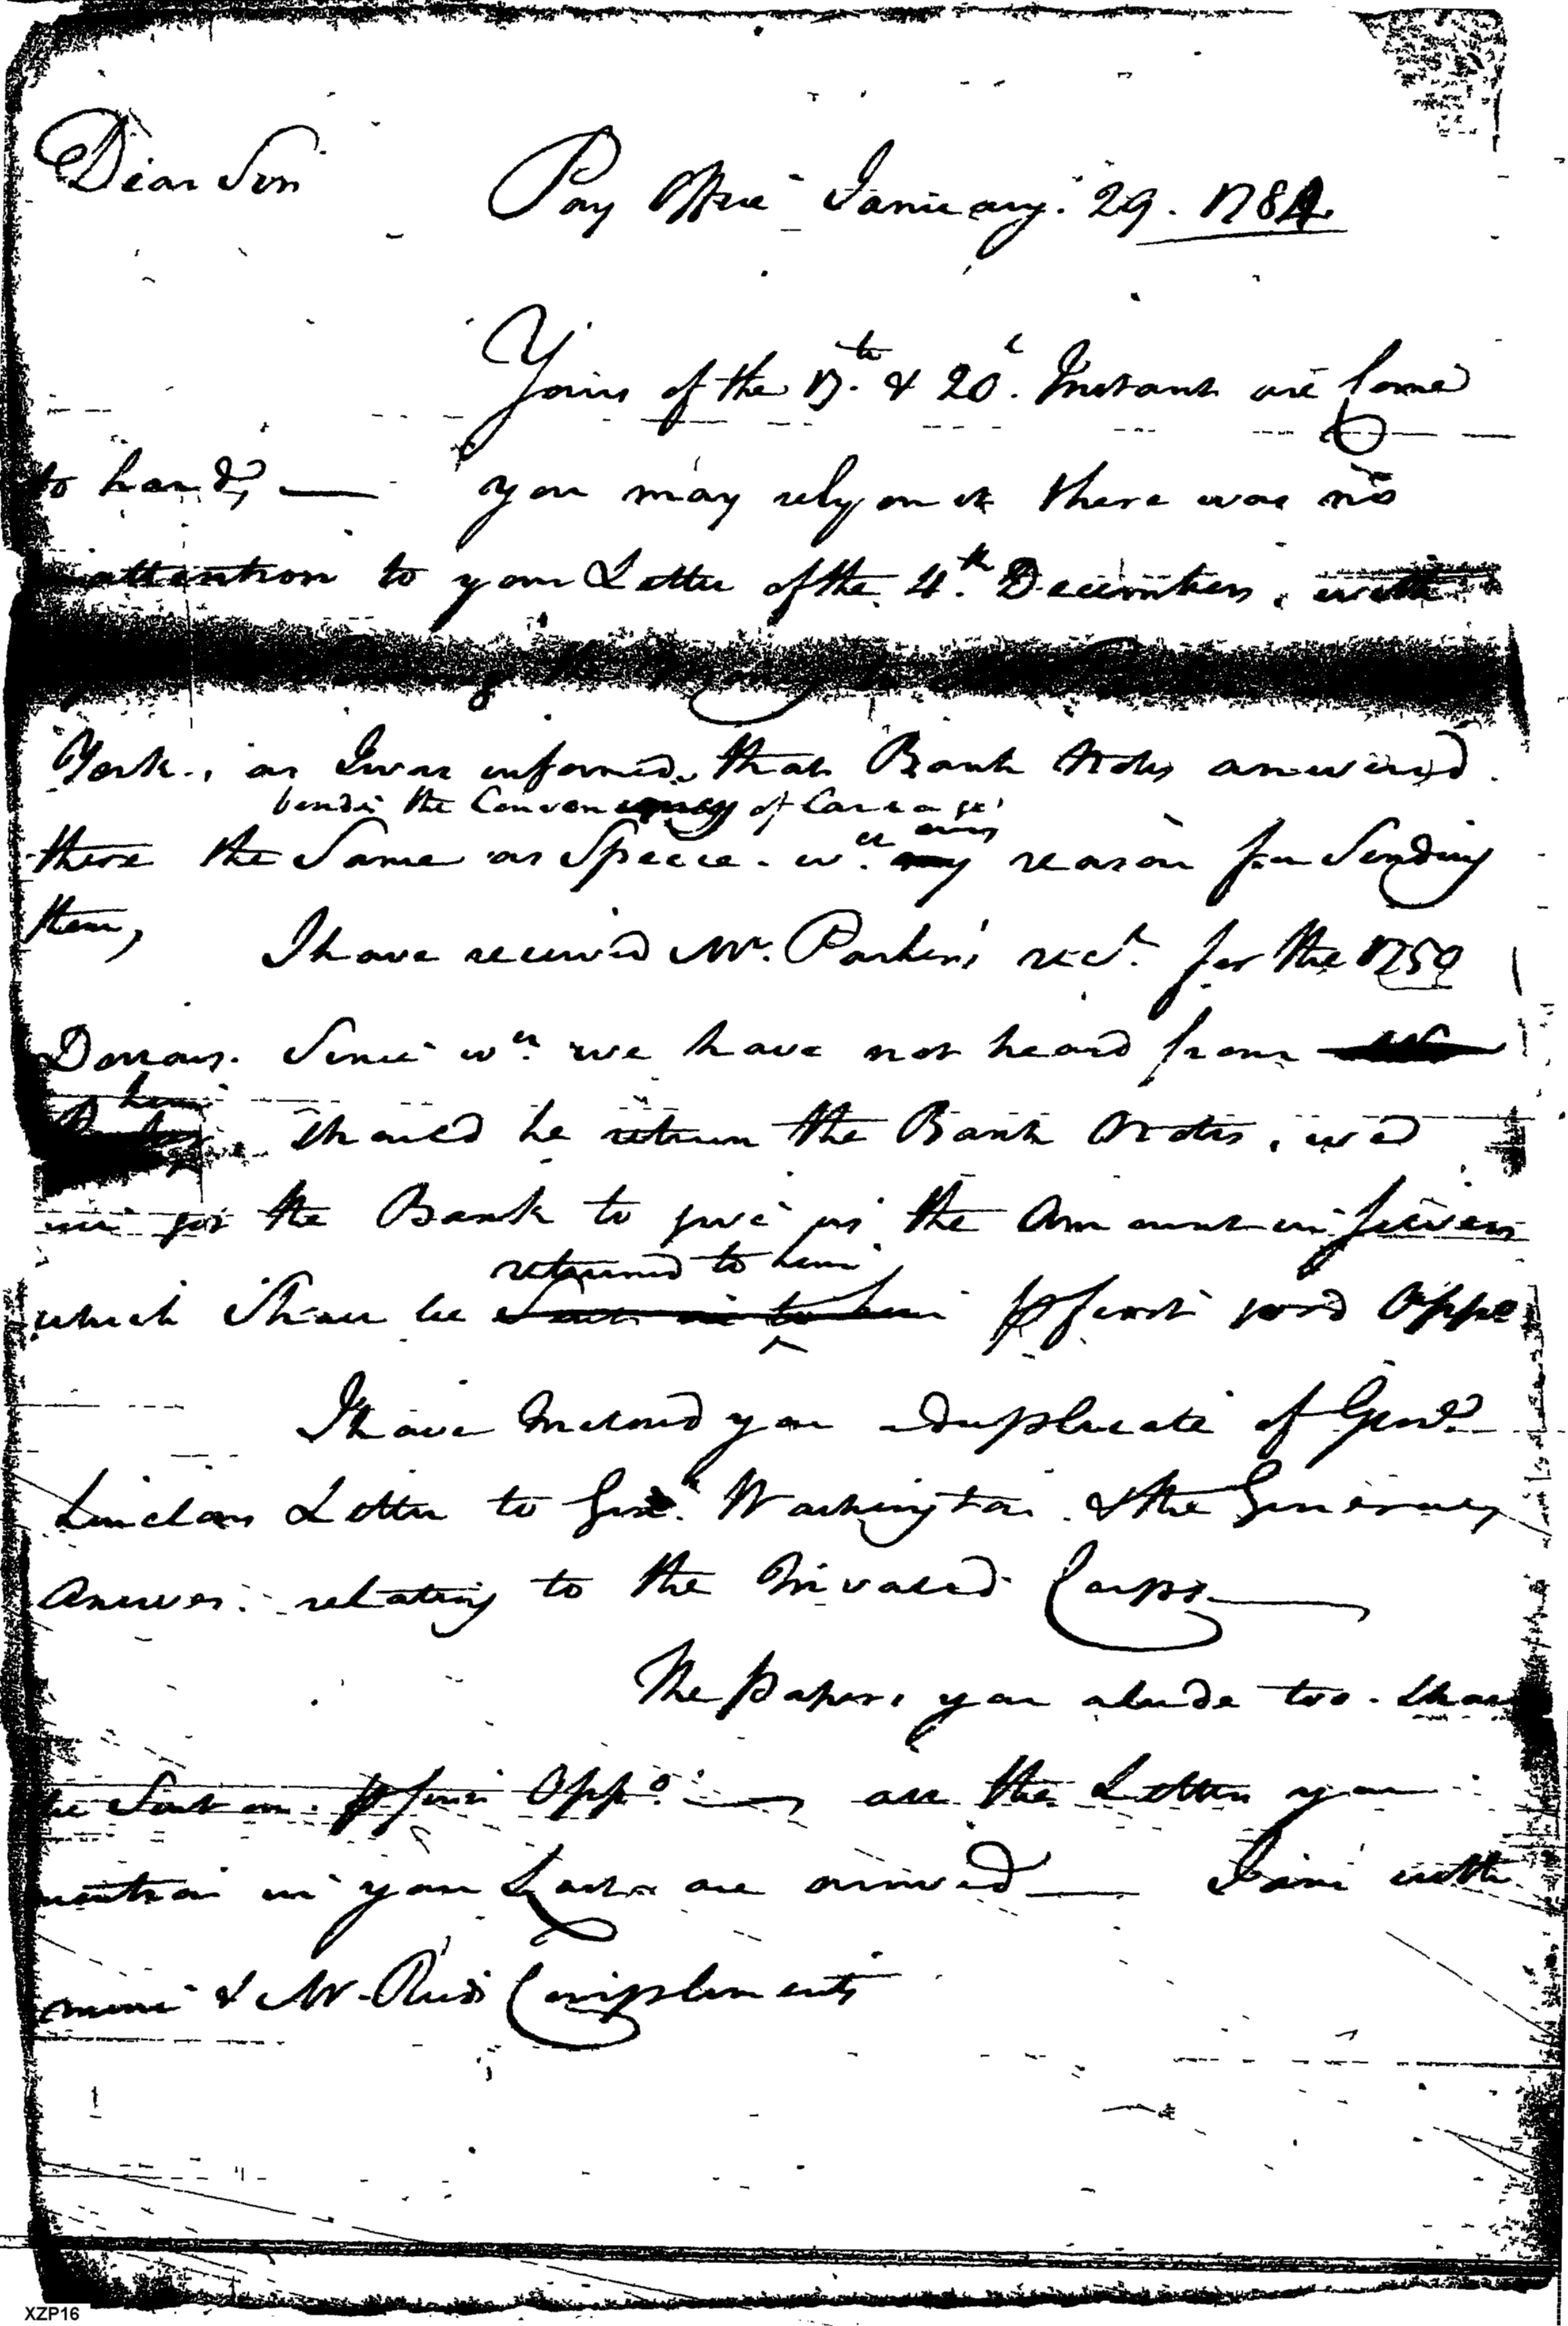 Dear Sir
Pay Office January. 29. 1784.
Yours of the 17.th & 20.t Instant are Come
to hand, — you may rely on it there was no
inattention to your Letter of the 4.th December, with
the Money to
York., as I was informed, that Bank Notes answered
beside the Conveniency of Carriage
there the Same as Specie. w.ch my our reason for Sending
them, I have received Mr. Parker's rec.t for the 1750
Dollars. Since w.ch we have not heard from
him. Should he return the Bank Notes, we'd
the Bank to give us the Amount in
which Shall be returned to him Sent on to him ⅌ first good Oppo
I have Inclosed you a Duplicate of Genl.
Lincolns Letter to Gen.l Washington. & the Generals
Answer. relating to the Invalid Corps. —
The Papers, you alude too. Shall
be Sent on. ⅌ first Opp.o — all the Letters you
mention in your Last are arrived — I am with
mine & Mr. Compliments
XZP16